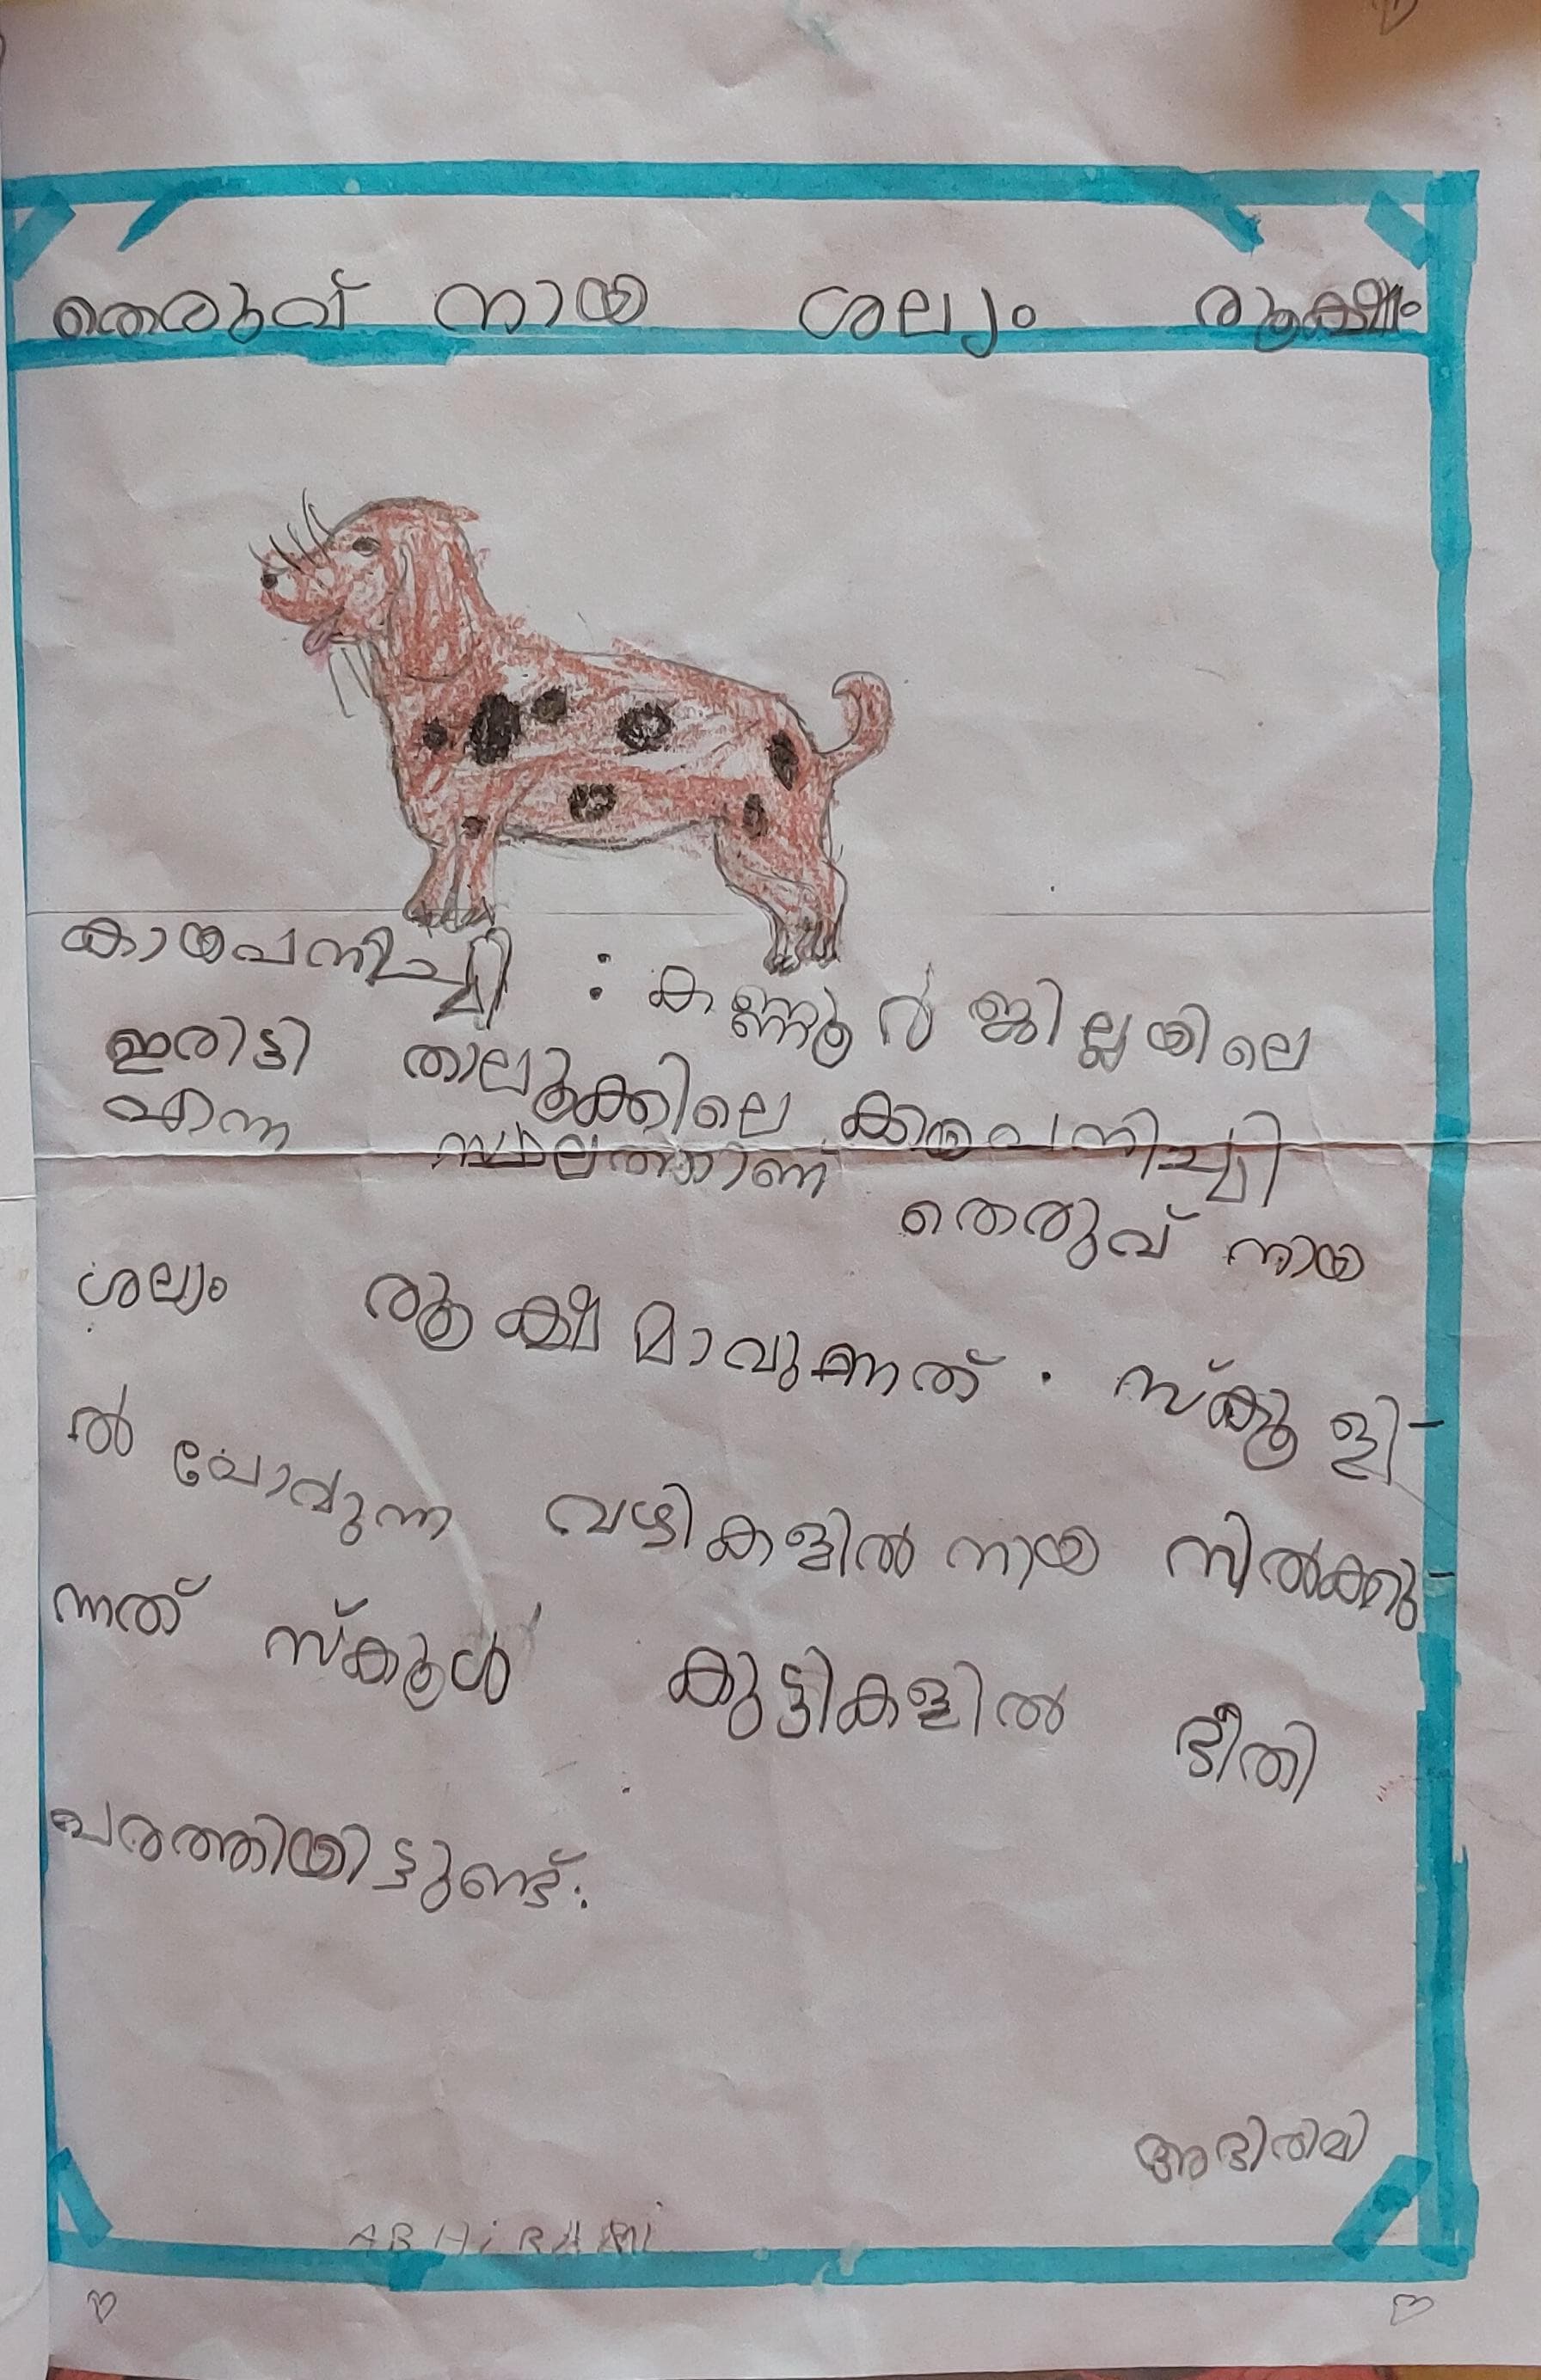 തെരുവ് നായ ശല്യം രൂക്ഷം
കായപനിച്ചി : കണ്ണൂർ ജില്ലയിലെ
ഇരിട്ടി താലൂക്കിലെ കായപനിച്ചി
എന്ന സ്ഥലത്താണ് തെരുവ് നായ
ശല്യം രൂക്ഷമാവുന്നത്. സ്കൂളി-
ൽ പോവുന്ന വഴികളിൽ നായ നിൽക്കു-
ന്നത് സ്കൂൾ കുട്ടികളിൽ ഭീതി
പരത്തിയിട്ടുണ്ട്.
അഭിരാമി
ABHiRAMI